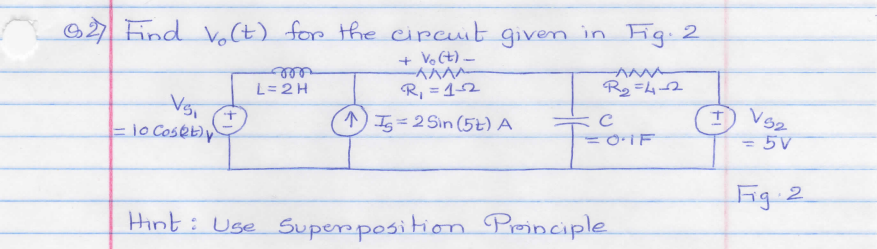 Q2) Find V₀(t) for the circuit given in Fig. 2
+ V₀(t) –
L = 2H
R₁ = 1Ω
R₂ = 4Ω
Vs₁
= 10 Cos(2t) V
+
–
↑
Is = 2 Sin(5t) A
C
= 0.1F
+
–
Vs₂
= 5V
Fig. 2
Hint : Use Superposition Principle